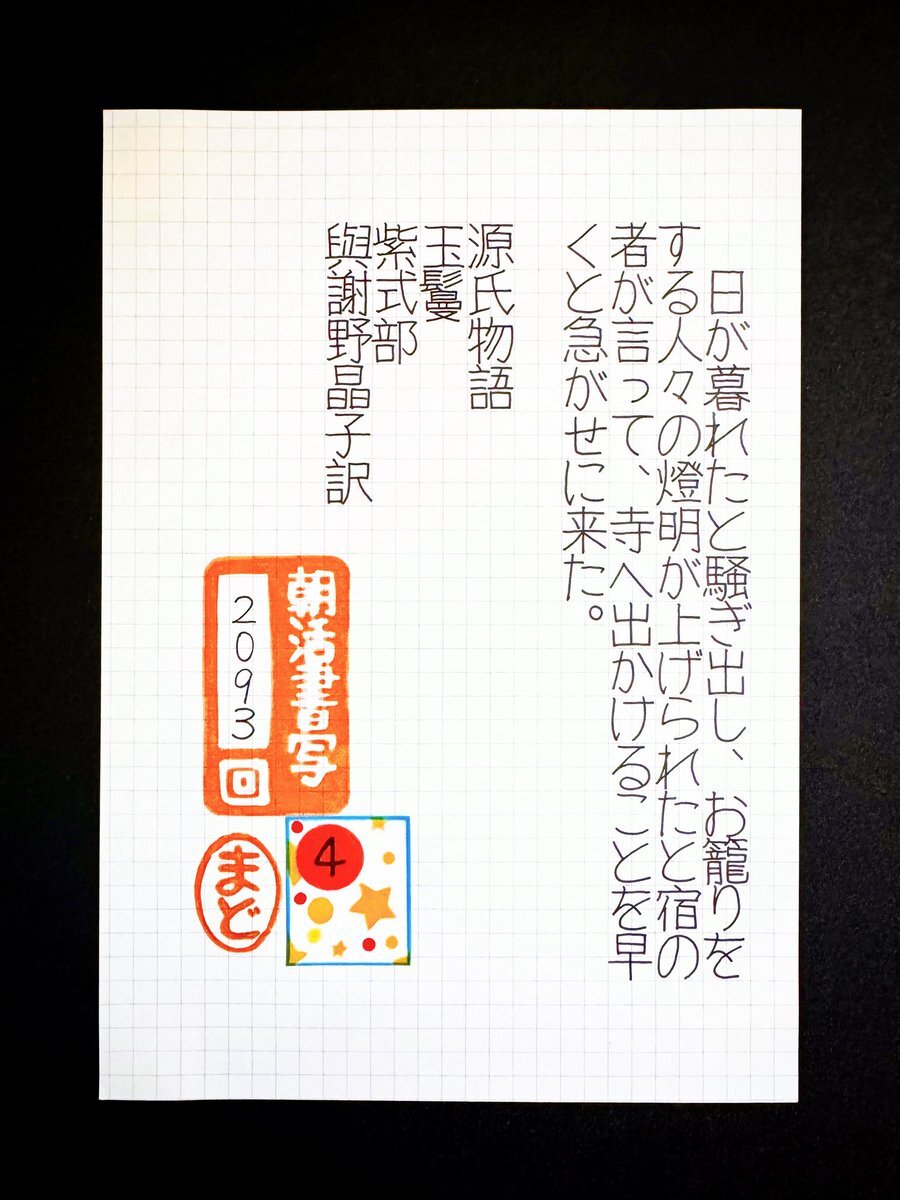 日が暮れたと騒ぎ出し、お籠りを
する人々の燈明が上げられたと宿の
者が言って、寺へ出かけることを早
くと急がせに来た。
源氏物語
玉鬘
紫式部
與謝野晶子訳
朝活書写
2093
回
4
まど